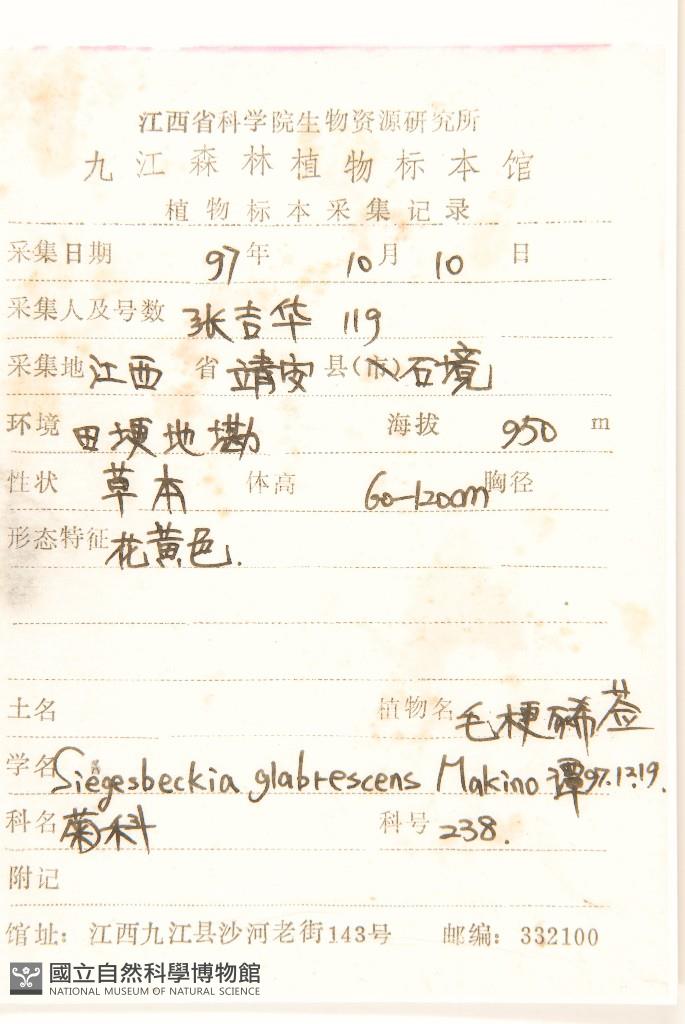 江西省科学院生物资源研究所
九江森林植物标本馆
植物标本采集记录
采集日期 97年 10月 10 日
采集人及号数 张吉华 119
采集地 江西 省 靖安 县(市) 石境
环境 田埂地塝 海拔 950 m
性状 草本 体高 60-120cm 胸径
形态特征 花黄色.
土名 植物名 毛梗豨莶
学名 Siegesbeckia glabrescens Makino 谭97.12.19.
科名 菊科 科号 238.
附记
馆址: 江西九江县沙河老街143号 邮编: 332100
國立自然科學博物館
NATIONAL MUSEUM OF NATURAL SCIENCE